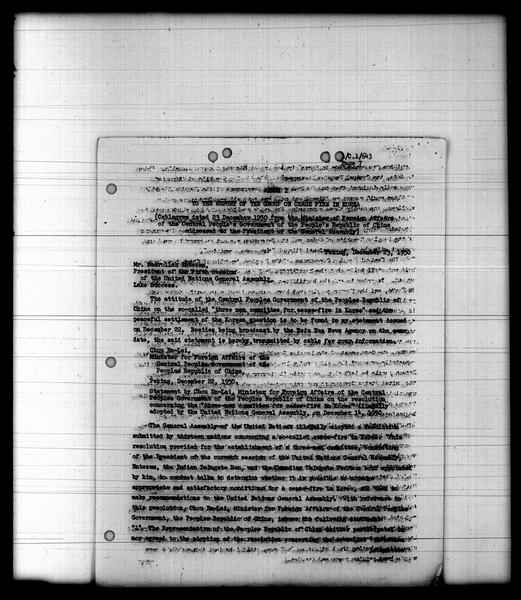 A/C.1/643
Page 7
ANNEX I
TO THE REPORT OF THE GROUP ON CEASE FIRE IN KOREA
(Cablegram dated 23 December 1950 from the Minister of Foreign Affairs
of the Central People's Government of the People's Republic of China
addressed to the President of the General Assembly)
Peking, December 23, 1950
Mr. Nasrollah Entezam,
President of the Fifth Session
of the United Nations General Assembly,
Lake Success.
The attitude of the Central Peoples Government of the Peoples Republic of
China on the so-called "three men committee for cease-fire in Korea" and the
peaceful settlement of the Korean question is to be found in my statement issued
on December 22. Besides being broadcast by the Hsin Hua News Agency on the same
date, the said statement is hereby transmitted by cable for your information.
Chou En-Lai,
Minister for Foreign Affairs of the
Central Peoples Government of the
Peoples Republic of China
Peking, December 22, 1950
Statement by Chou En-Lai, Minister for Foreign Affairs of the Central
Peoples Government of the Peoples Republic of China on the resolution
concerning the "three-men committee for cease-fire in Korea" illegally
adopted by the United Nations General Assembly, on December 14, 1950.
The General Assembly of the United Nations illegally adopted a resolution
submitted by thirteen nations concerning a so-called cease-fire in Korea. This
resolution provided for the establishment of a three-men committee, consisting
of the President of the current session of the United Nations General Assembly,
Entezam, the Indian Delegate Rau, and the Canadian Delegate Pearson
by him, to conduct talks to determine whether it is possible to arrange
appropriate and satisfactory conditions for a cease-fire in Korea, and then to
make recommendations to the United Nations General Assembly. With reference to
this resolution, Chou En-Lai, Minister for Foreign Affairs of the Central Peoples
Government, the Peoples Republic of China, issues the following statement:
"1. The Representative of the Peoples Republic of China neither participated in
nor agreed to the adoption of the resolution concerning the